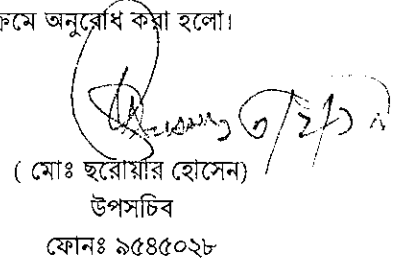 ক্রমে অনুরোধ করা হলো।
( মোঃ ছরোয়ার হোসেন)
উপসচিব
ফোনঃ ৯৫৪৫০২৮